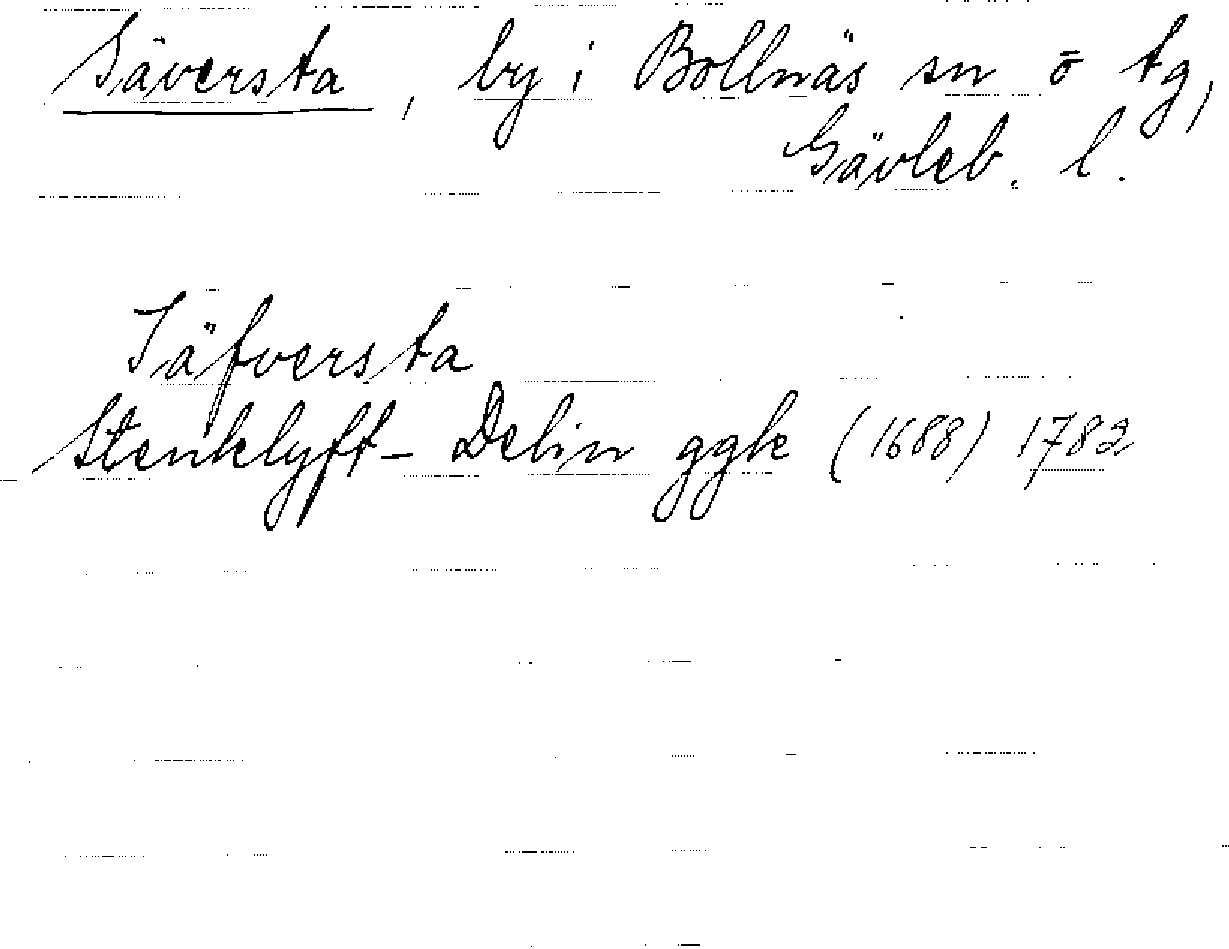 Säversta, by i Bollnäs sn ō tg,
Gävleb. l.
Säfversta
Stenklyft - Delin ggk (1688) 1782